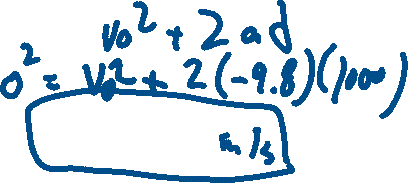 v₀² + 2ad
0² = v₀² + 2(-9.8)(1000)
m/s